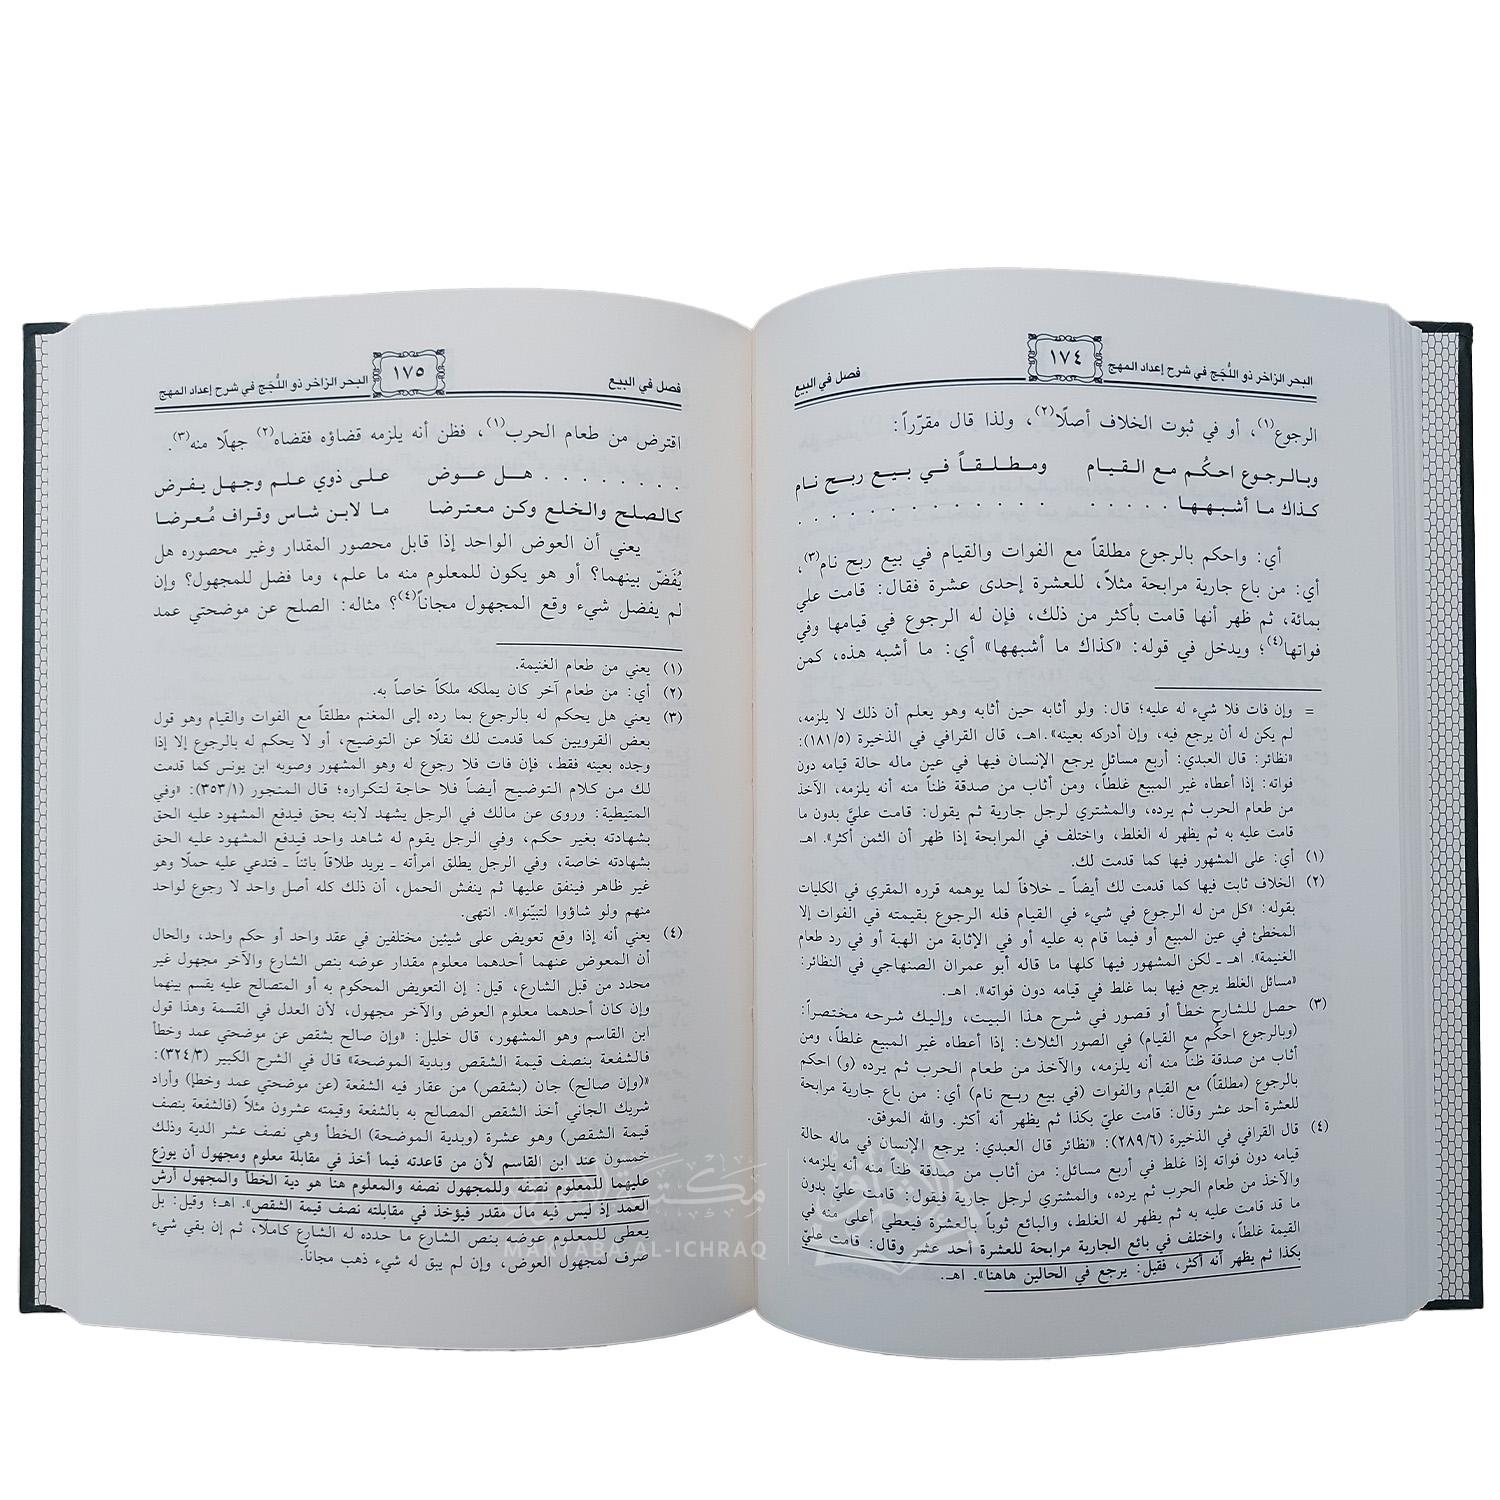 البحر الزاخر ذو اللُّجَج في شرح إعداد المهج
١٧٤
فصل في البيع
الرجوع(١)، أو في ثبوت الخلاف أصلًا(٢)، ولذا قال مقرّراً:
وبالرجوع احكُم مع القيام ومطلقاً في بيع ربح نام
كذاك ما أشبهها . . . . . . . . . . . . . . . .
أي: واحكم بالرجوع مطلقاً مع الفوات والقيام في بيع ربح نام(٣)،
أي: من باع جارية مرابحة مثلاً، للعشرة إحدى عشرة فقال: قامت علي
بمائة، ثم ظهر أنها قامت بأكثر من ذلك، فإن له الرجوع في قيامها وفي
فواتها(٤)؛ ويدخل في قوله: «كذاك ما أشبهها» أي: ما أشبه هذه، كمن
= وإن فات فلا شيء له عليه؛ قال: ولو أثابه حين أثابه وهو يعلم أن ذلك لا يلزمه،
لم يكن له أن يرجع فيه، وإن أدركه بعينه».اهـ، قال القرافي في الذخيرة (١٨١/٥):
«نظائر: قال العبدي: أربع مسائل يرجع الإنسان فيها في عين ماله حالة قيامه دون
فواته: إذا أعطاه غير المبيع غلطاً، ومن أثاب من صدقة ظناً منه أنه يلزمه، الآخذ
من طعام الحرب ثم يرده، والمشتري لرجل جارية ثم يقول: قامت عليَّ بدون ما
قامت عليه به ثم يظهر له الغلط، واختلف في المرابحة إذا ظهر أن الثمن أكثر». اهـ
(١) أي: على المشهور فيها كما قدمت لك.
(٢) الخلاف ثابت فيها كما قدمت لك أيضاً ـ خلافاً لما يوهمه قرره المقري في الكليات
بقوله: «كل من له الرجوع في شيء في القيام فله الرجوع بقيمته في الفوات إلا
المخطئ في عين المبيع أو فيما قام به عليه أو في الإثابة من الهبة أو في رد طعام
الغنيمة». اهـ ـ لكن المشهور فيها كلها ما قاله أبو عمران الصنهاجي في النظائر:
«مسائل الغلط يرجع فيها بما غلط في قيامه دون فواته». اهـ.
(٣) حصل للشارح خطأ أو قصور في شرح هذا البيت، وإليك شرحه مختصراً:
(وبالرجوع احكُم مع القيام) في الصور الثلاث: إذا أعطاه غير المبيع غلطاً، ومن
أثاب من صدقة ظناً منه أنه يلزمه، والآخذ من طعام الحرب ثم يرده (و) احكم
بالرجوع (مطلقاً) مع القيام والفوات (في بيع ربح نام) أي: من باع جارية مرابحة
للعشرة أحد عشر وقال: قامت عليّ بكذا ثم يظهر أنه أكثر. والله الموفق.
(٤) قال القرافي في الذخيرة (٢٨٩/٦): «نظائر قال العبدي: يرجع الإنسان في ماله حالة
قيامه دون فواته إذا غلط في أربع مسائل: من أثاب من صدقة ظناً منه أنه يلزمه،
والآخذ من طعام الحرب ثم يرده، والمشتري لرجل جارية فيقول: قامت عليّ بدون
ما قد قامت عليه به ثم يظهر له الغلط، والبائع ثوباً بالعشرة فيعطي أعلى منه في
القيمة غلطاً، واختلف في بائع الجارية مرابحة للعشرة أحد عشر وقال: قامت عليّ
بكذا ثم يظهر أنه أكثر، فقيل: يرجع في الحالين هاهنا». اهـ.
فصل في البيع
١٧٥
البحر الزاخر ذو اللُّجَج في شرح إعداد المهج
اقترض من طعام الحرب(١)، فظن أنه يلزمه قضاؤه فقضاه(٢) جهلًا منه(٣).
. . . . . . . . هل عوض على ذوي علم وجهل يفرض
كالصلح والخلع وكن معترضا ما لابن شاس وقراف مُعرضا
يعني أن العوض الواحد إذا قابل محصور المقدار وغير محصوره هل
يُفَضّ بينهما؟ أو هو يكون للمعلوم منه ما علم، وما فضل للمجهول؟ وإن
لم يفضل شيء وقع المجهول مجاناً(٤)؟ مثاله: الصلح عن موضحتي عمد
(١) يعني من طعام الغنيمة.
(٢) أي: من طعام آخر كان يملكه ملكاً خاصاً به.
(٣) يعني هل يحكم له بالرجوع بما رده إلى المغنم مطلقاً مع الفوات والقيام وهو قول
بعض القرويين كما قدمت لك نقلًا عن التوضيح، أو لا يحكم له بالرجوع إلا إذا
وجده بعينه فقط، فإن فات فلا رجوع له وهو المشهور وصوبه ابن يونس كما قدمت
لك من كلام التوضيح أيضاً فلا حاجة لتكراره؛ قال المنجور (٣٥٣/١): «وفي
المتيطية: وروى عن مالك في الرجل يشهد لابنه بحق فيدفع المشهود عليه الحق
بشهادته بغير حكم، وفي الرجل يقوم له شاهد واحد فيدفع المشهود عليه الحق
بشهادته خاصة، وفي الرجل يطلق امرأته ـ يريد طلاقاً بائناً ـ فتدعي عليه حملًا وهو
غير ظاهر فينفق عليها ثم ينفش الحمل، أن ذلك كله أصل واحد لا رجوع لواحد
منهم ولو شاؤوا لتبيّنوا». انتهى.
(٤) يعني أنه إذا وقع تعويض على شيئين مختلفين في عقد واحد أو حكم واحد، والحال
أن المعوض عنهما أحدهما معلوم مقدار عوضه بنص الشارع والآخر مجهول غير
محدد من قبل الشارع، قيل: إن التعويض المحكوم به أو المتصالح عليه يقسم بينهما
وإن كان أحدهما معلوم العوض والآخر مجهول، لأن العدل في القسمة وهذا قول
ابن القاسم وهو المشهور، قال خليل: «وإن صالح بشقص عن موضحتي عمد وخطأ
فالشفعة بنصف قيمة الشقص وبدية الموضحة» قال في الشرح الكبير (٣٢٤/٣):
«(وإن صالح) جان (بشقص) من عقار فيه الشفعة (عن موضحتي عمد وخطإ) وأراد
شريك الجاني أخذ الشقص المصالح به بالشفعة وقيمته عشرون مثلاً (فالشفعة بنصف
قيمة الشقص) وهو عشرة (وبدية الموضحة) الخطأ وهي نصف عشر الدية وذلك
خمسون عند ابن القاسم لأن من قاعدته فيما أخذ في مقابلة معلوم ومجهول أن يوزع
عليهما للمعلوم نصفه وللمجهول نصفه والمعلوم هنا هو دية الخطأ والمجهول أرش
العمد إذ ليس فيه مال مقدر فيؤخذ في مقابلته نصف قيمة الشقص». اهـ؛ وقيل: بل
يعطى للمعلوم عوضه بنص الشارع ما حدده له الشارع كاملًا، ثم إن بقي شيء
صرف لمجهول العوض، وإن لم يبق له شيء ذهب مجاناً.
مكتبة الإشراق
MAKTABA AL-ICHRAQ